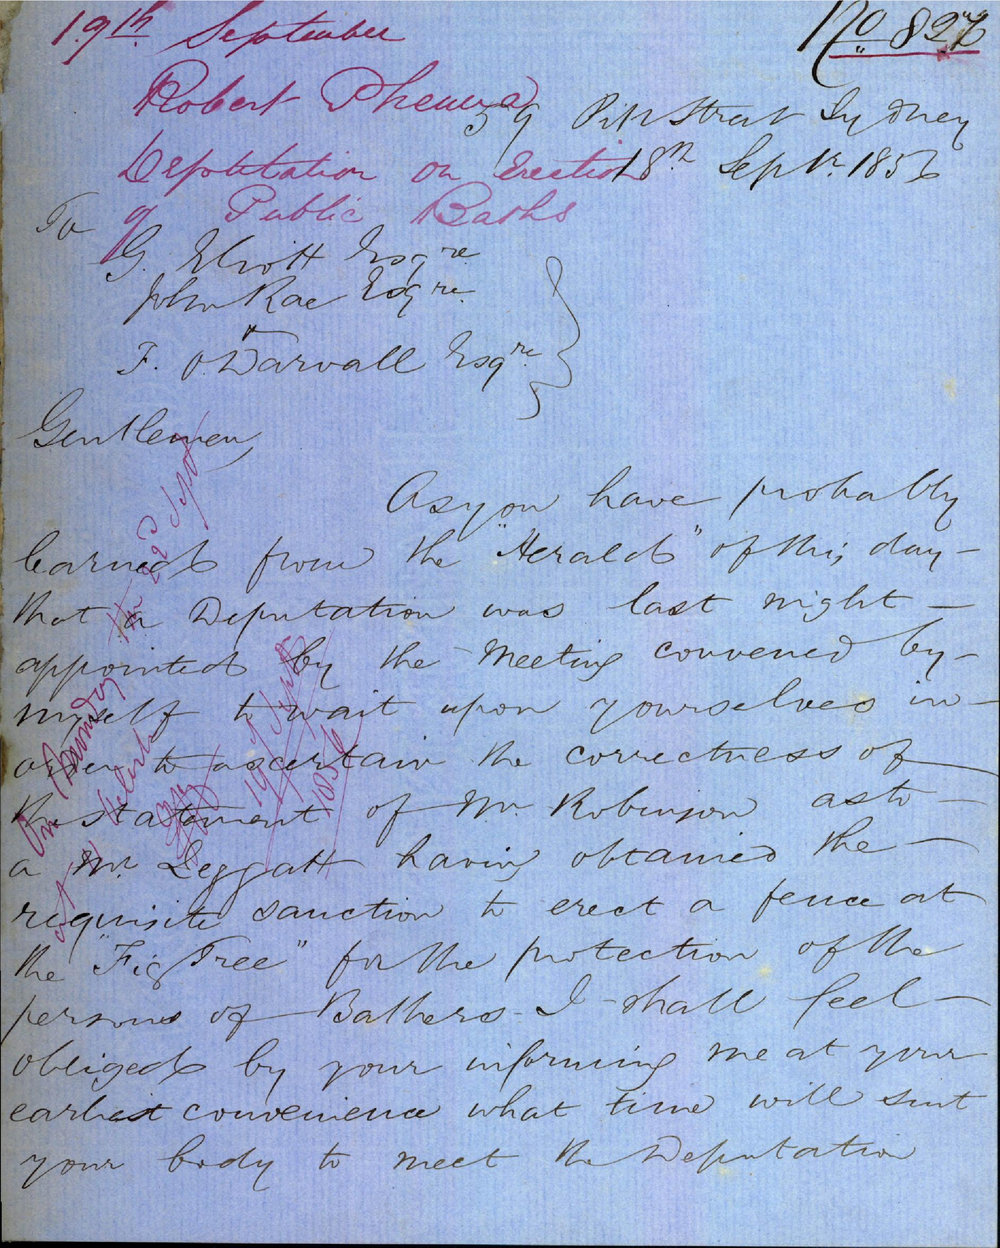 19th September
No 827
Robert
59 Pitt Street Sydney
Deputation on Erection
18th Septr. 1856
of Public Baths
To
G. Eliott Esqre.
John Rae Esqre.
F. O. Darvall Esqre
Gentlemen,
As you have probably
learned from the "Herald" of this day -
that a Deputation was last night -
appointed by the Meeting convened by -
myself to wait upon yourselves in -
order to ascertain the correctness of
the statement of Mr. Robinson as to -
a Mr. Leggatt having obtained the -
requisite sanction to erect a fence at
the "Fig Tree" for the protection of the
persons of Bathers - I shall feel -
obliged by your informing me at your
earliest convenience what time will suit
your body to meet the Deputation
On Monday the 22d Sept
at
19 Sept
1856